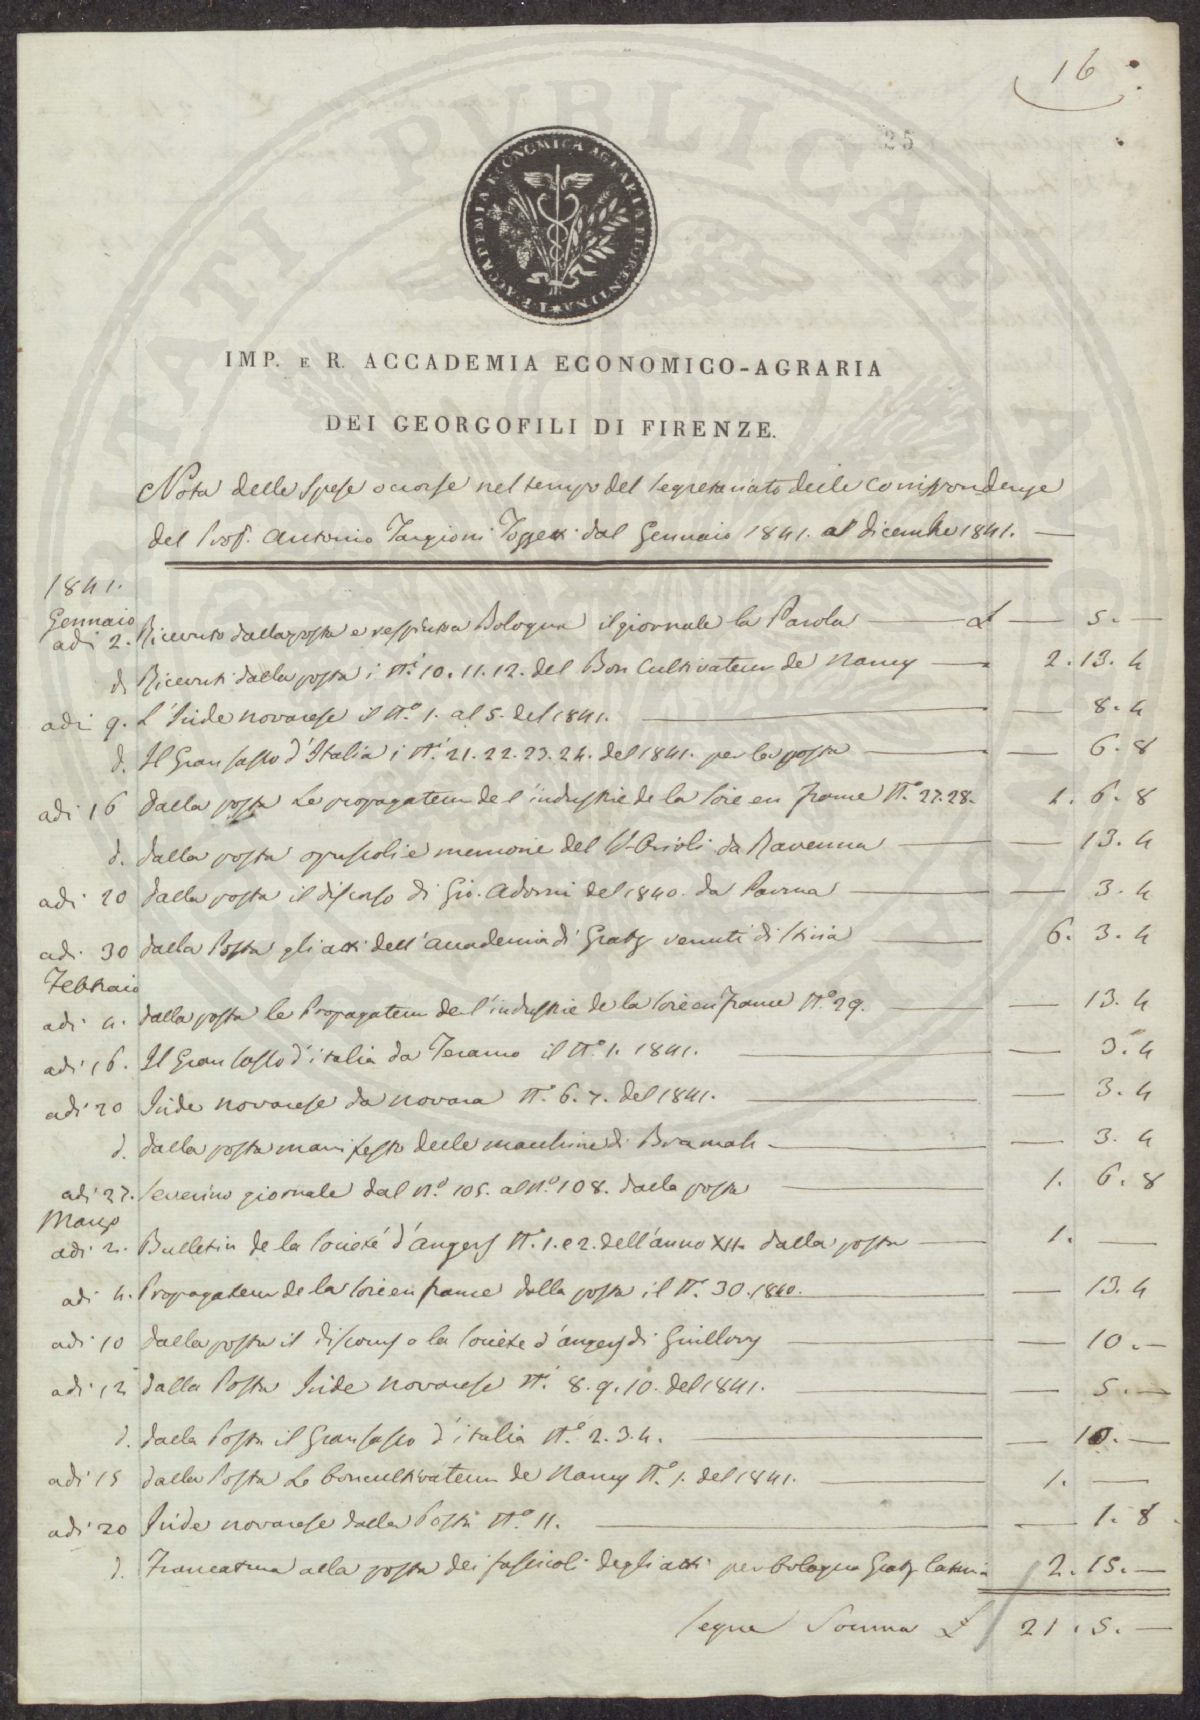 16
25
I. E R. ACCADEMIA ECONOMICA AGRARIA FIORENTINA
IMP. E R. ACCADEMIA ECONOMICO-AGRARIA
DEI GEORGOFILI DI FIRENZE.
Nota delle Spese occorse nel tempo del Segretariato delle Corrispondenze
del Prof. Antonio Targioni Tozzetti dal Gennaio 1841. al dicembre 1841. —
1841.
Gennaio
adi 2. Ricevuto dalla posta e respinto a Bologna il giornale la Parola — £ — 5. —
d. Ricevuti dalla posta i Ni 10. 11. 12. del Bon Cultivateur de Nancy — 2. 13. 4
adi 9. L'Iride novarese il No. 1. al 5. del 1841. — 8. 4
d. Il Gran Sasso d'Italia i Ni 21. 22. 23. 24. del 1841. per la posta — 6. 8
adi 16 dalla posta Le propagateur de l'industrie de la soie en france No. 27. 28. 1. 6. 8
d. dalla posta opuscoli e memorie del Sr Orioli da Ravenna — 13. 4
adi 20 dalla posta il discorso di Gio. Adorni del 1840. da Parma — 3. 4
adi 30 dalla Posta gli atti dell'accademia di Gratz venuti di Stiria — 6. 3. 4
Febbraio
adi 4. dalla posta le Propagateur de l'industrie de la soie en france No. 29. — 13. 4
adi 16. Il Gran Sasso d'italia da Teramo il No. 1. 1841. — 3. 4
adi 20 Iride novarese da novara No. 6. 7. del 1841. — 3. 4
d. dalla posta manifesto delle macchine di Bramah — 3. 4
adi 27. Severino giornale dal No. 105. al No. 108. dalla posta — 1. 6. 8
Marzo
adi 2. Bulletin de la Société d'angers No. 1. e 2. dell'anno XII. dalla posta — 1. —
adi 4. Propagateur de la soie en france dalla posta il No. 30. 1840. — 13. 4
adi 10 dalla posta il discours a la Societe d'angers di Guillory — 10. —
adi 12 dalla Posta Iride novarese Ni. 8. 9. 10. del 1841. — 5. —
d. dalla Posta il Gran sasso d'italia No. 2. 3. 4. — 10. —
adi 15 dalla Posta Le bon cultivateur de Nancy No. 1. del 1841. 1. —
adi 20 Iride novarese dalla Posta No. 11. — 1. 8
d. Francatura alla posta dei fascicoli degli atti per bologna Gratz 2. 15. —
segue Somma £ 21. 5. —